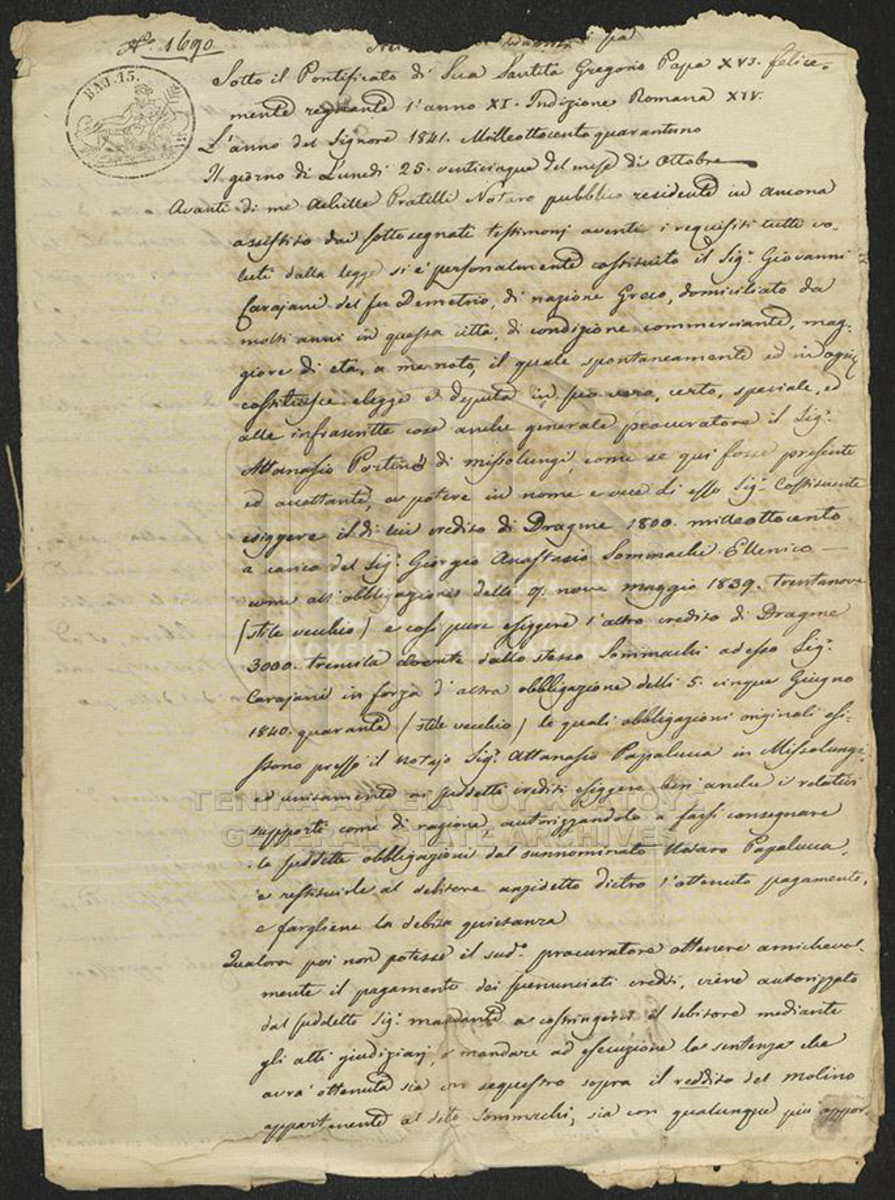 N.º 1690
BAJ. 15.
Sotto il Pontificato di Sua Santità Gregorio Papa XVI. felice=
mente regnante l'anno XI. Indizione Romana XIV.
L'anno del Signore 1841. Milleottocento quarantuno
Il giorno di Lunedi 25. venticinque del mese di Ottobre
Avanti di me Achille Pratelli Notaro pubblico residente in Ancona
assistito dai sottosegnati testimonj aventi i requisiti tutti vo-
luti dalla legge si è personalmente costituito il Sig.r Giovanni
Carajani del fu Demetrio, di nazione Greco, domiciliato da
molti anni in questa città, di condizione commerciante, mag-
giore di età, a me noto, il quale spontaneamente ed in ogni
costituisce elegge e deputa in suo vero, certo, speciale, ed
alle infrascritte cose anche generale procuratore il Sig.r
Attanasio di Missolungi, come se qui fosse presente
ed accettante, a potere in nome e vece di esso Sig.r Costituente
esiggere il di lui credito di Dragme 1800. milleottocento
a carico del Sig.r Giorgio Anastasio Sommachi Ellenico —
come all'obbligazione delli 9. nove maggio 1839. trentanove
(stile vecchio) e così pure esiggere l'altro credito di Dragme
3000. tremila dovute dallo stesso Sommachi ad esso Sig.r
Carajani in forza d'altra obbligazione delli 5. cinque Giugno
1840. quaranta (stile vecchio) le quali obbligazioni originali esi-
stono presso il notajo Sig.r Attanasio Papalucca in Missolungi,
ed unitamente ai suddetti crediti esiggere ben'anche i relativi
frutti come di ragione, autorizzandolo a farsi consegnare
le suddette obbligazioni dal sunnominato Notaro Papalucca,
e restituirle al debitore anzidetto dietro l'ottenuto pagamento,
e fargliene la debita quietanza
Qualora poi non potesse il sud.o procuratore ottenere amichevol-
mente il pagamento dei crediti, viene autorizzato
dal suddetto Sig.r mandante a costringere il debitore mediante
gli atti giudiziarj, e mandare ad esecuzione la sentenza che
avrà ottenuta sia con sequestro sopra il reddito del Molino
appartenente al d.to Sommachi, sia con qualunque più oppor-
ΓΕΝΙΚΑ ΑΡΧΕΙΑ ΤΟΥ ΚΡΑΤΟΥΣ
GENERAL STATE ARCHIVES